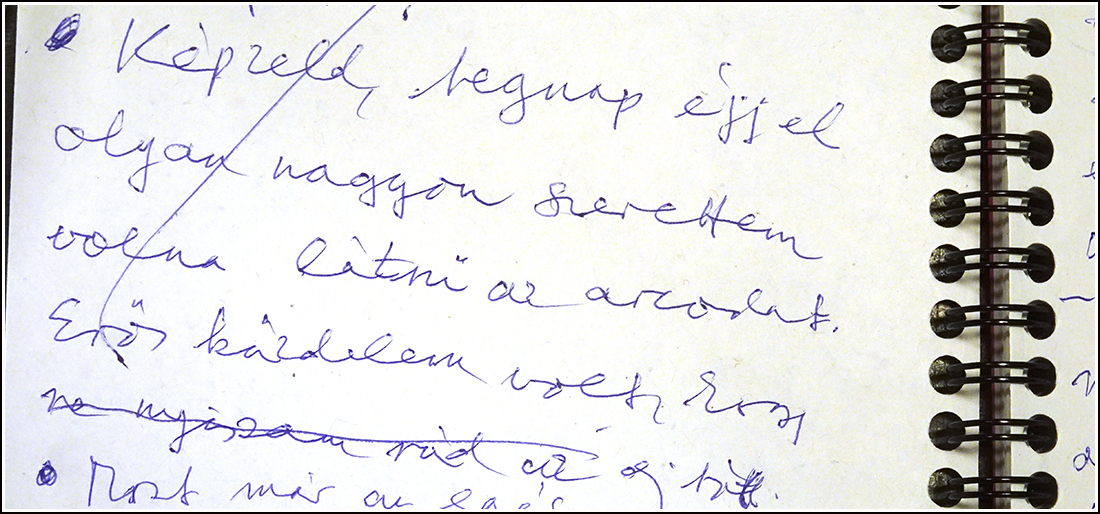 Képzeld, tegnap éjjel
olyan nagyon szerettem
volna látni az arcodat.
Erős küzdelem volt, hogy
ne nyissam rád az ajtót.
Most már az egész